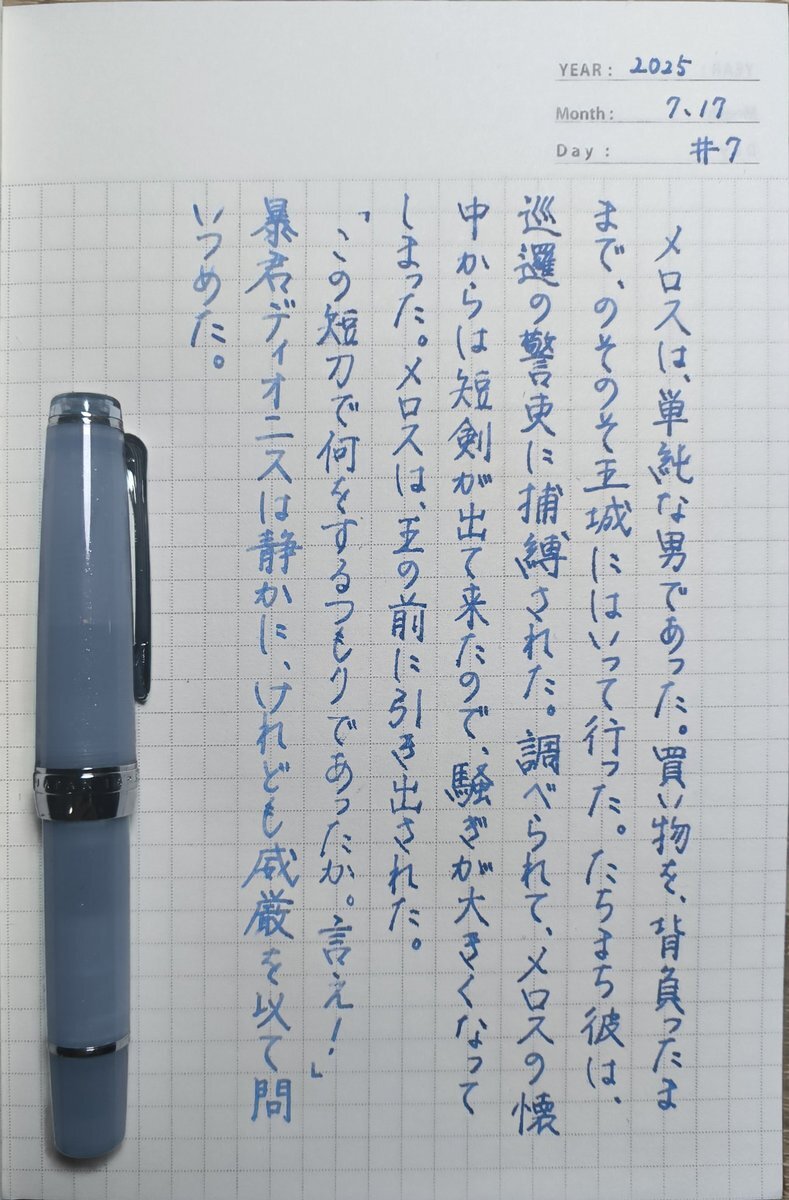 YEAR: 2025
Month: 7、17
Day: #7
メロスは、単純な男であった。買い物を、背負ったま
まで、のそのそ王城にはいって行った。たちまち彼は、
巡邏の警吏に捕縛された。調べられて、メロスの懐
中からは短剣が出て来たので、騒ぎが大きくなって
しまった。メロスは、王の前に引き出された。
「この短刀で何をするつもりであったか。言え！」
暴君ディオニスは静かに、けれども威厳を以て問
いつめた。